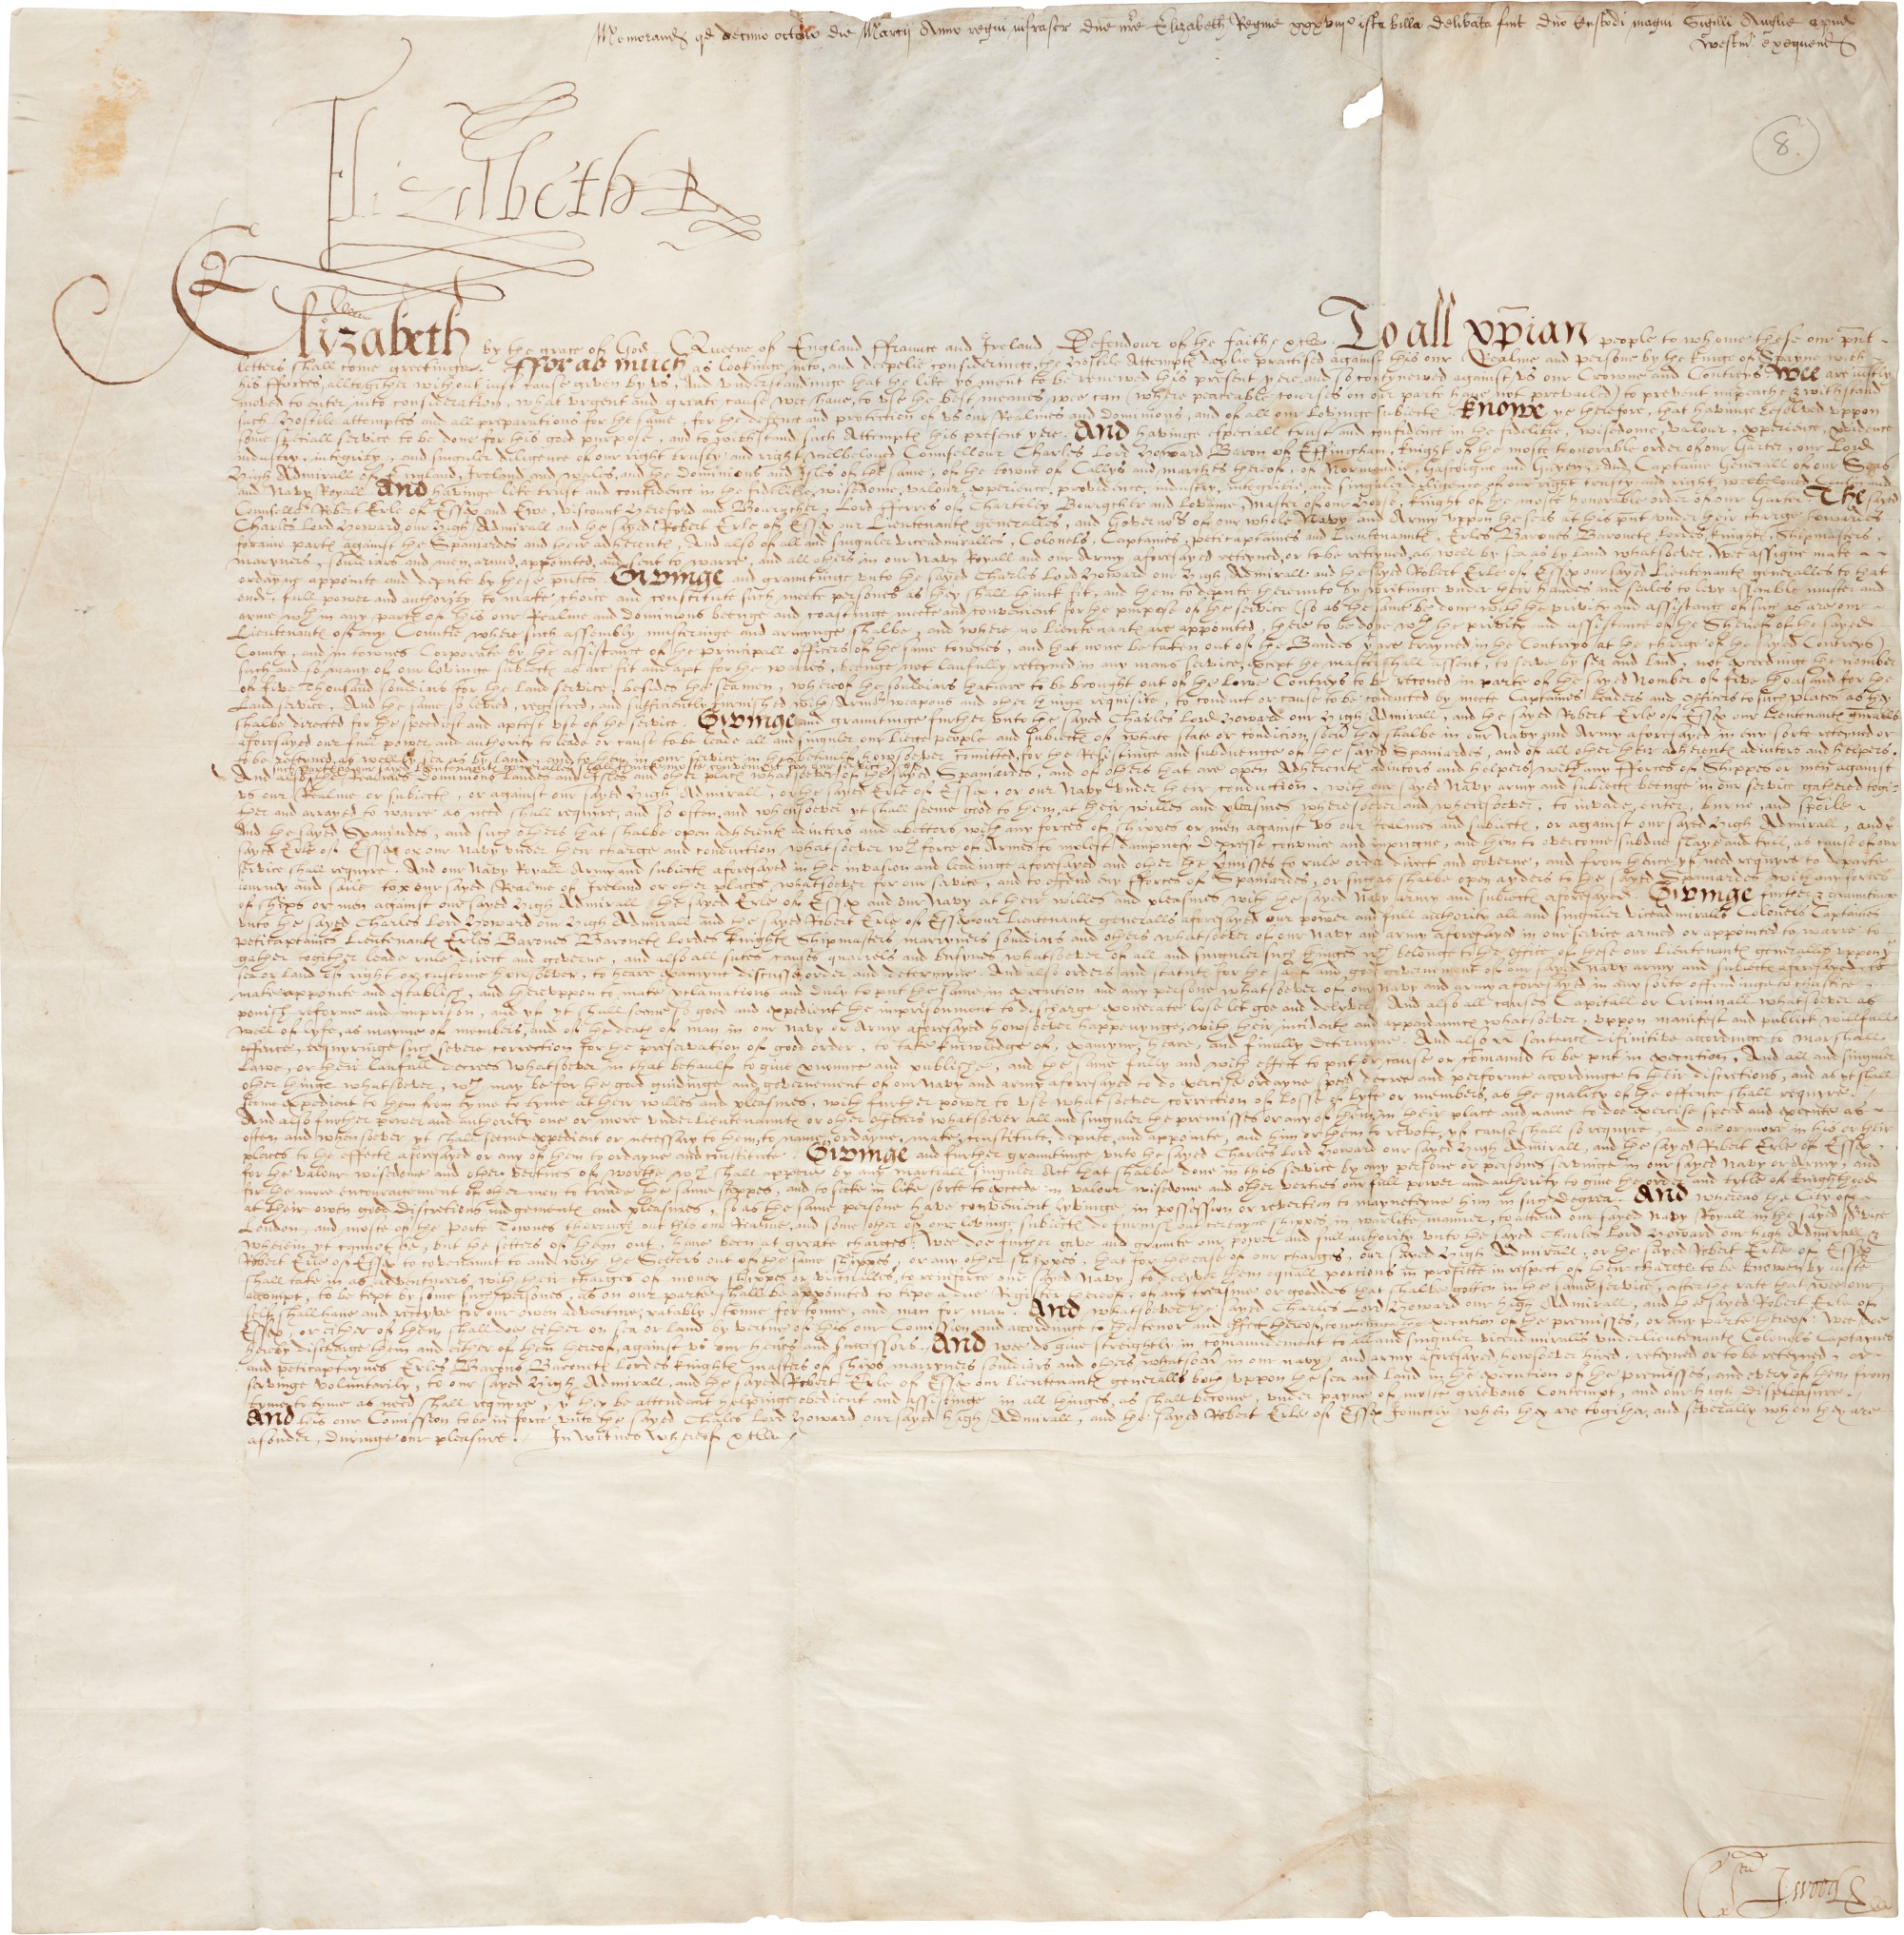 Memorand qd decimo octavo die Marcij Anno regni infrascr dne nre Elizabeth Regine xxxviijo ista billa deliberata fuit dno Custodi magni Sigilli Anglie apud
Westm exequend
8.
Elizabeth R
Elizabeth by the grace of God Queene of England Ffraunce and Ireland Defendour of the faithe &c To all xpian people to whome these our pnt
letters shall come greetinge. Ffor as much as lookinge into, and deepelie consideringe, the hostile Attempts daylie practised against this our Realme and persone by the kinge of Spayne with
his fforces, alltogither without iust cause given by us, And understandinge that the like ys ment to be renewed this present yere, and so contynewed against us our Crowne and Contreys Wee are iustly
moved to enter into consideration, what urgent and greate cause wee have, to use the best meanes wee can (where peaceable courses on our parte have not prevailed) to prevent impeache & withstand
such hostile attempts and all preparations for the same, for the defence and protection of us our Realmes and dominions, and of all our lovinge subiects. Knowe ye therefore, that havinge resolved uppon
some speciall service to be done for this good purpose, and to withstand such Attempts this present yere. And havinge especiall trust and confidence in the fidelitie, wisedome, valour, experience, providence
industry, integrity, and singuler diligence of our right trusty and right welbeloved Counsellour Charles Lord Howard Baron of Effingham, knight of the moste honorable order of our Garter, our Lord
High Admirall of England, Ireland and Wales, and the Dominions and Isles of the same, of the towne of Callys and marches thereof, of Normandie, Gascoigne and Guyen, And Captaine Generall of our Seas
and Navy Royall And havinge like trust and confidence in the fidelitie, wisedome, valour, experience, providence, industry, integritie, and singuler diligence of our right trusty and right welbeloved Cousin and
Counsellor Robert Erle of Essex and Ewe, viscount Hereford and Bourgcher, Lord fferrers of Chartelley Bourgcher and Lovayne, Master of our Horse, knight of the moste honorable order of our Garter The sayed
Charles Lord Howard our high Admirall and the sayed Robert Erle of Essex our Lieutenants generalles, and Governors of our whole Navy and Army uppon the seas at this pnt under their charge towards
foraine parts against the Spaniardes and their adherents, And also of all and singuler viceadmiralles, Colonels, Captaines, peticaptaines and Lieutenants, Erles Barones Baronets Lordes, knights, Shipmasters,
maryners, souldiars and men, armed, appointed, and sent to warre, and all others in our Navy Royall and our Army aforesayed reteyned, or to be reteyned, as well by sea as by land whatsoever, Wee assigne make
ordayne appointe and depute by these pntes. Givinge and grauntinge unto the sayed Charles Lord Howard our high Admirall and the sayed Robert Erle of Essex our sayed Lieutenants generalles to that
ende, full power and authority to make choice and constitute such meete persones as they shall thinck fit, and them to depute thereunto by writinge under their handes and seales to levy assemble muster and
arme wth in any parts of this our Realme and dominions beenge and coastinge meete and convenient for the purpose of the service (so as the same be done with the privity and assistance of such as are our
Lieutenants of any Countie where such assembly musteringe and armynge shalbe, and where no Lieutenants are appointed, there to be done wth the privity and assistance of the Sherief of the sayed
County, and in townes Corporate by the assistance of the principall officers of the same townes, and that none be taken out of the Bandes yt are trayned in the Contreys at the charge of the sayed Contreys)
such and so many of our lovinge subiects as are fit and apt for the warres, beenge not lawfully reteyned in any mans service, except the master shall assent, to serve by sea and land, not exceedinge the nomber
of five thousand souldiars for the land service, besides the seamen, whereof the souldiars that are to be brought out of the lowe Contreys to be reconed in parte of the sayed Nomber of five thousand for the
Land service, And the same so levied, registred, and sufficiently furnished with Armor weapons and other thinge requisite, to conduct or cause to be conducted by meete Captaines leaders and officers to such places as they
shalbe directed for the speediest and aptest use of the service. Givinge and grauntinge further unto the sayed Charles Lord Howard our high Admirall, and the sayed Robert Erle of Essex our Lieutenants gnralls
aforesayed our full power and authority to leade or cause to be leade all and singuler our liege people and subiects of whate state or condition soever they shalbe in our Navy and Army aforesayed in any sorte reteyned or
to be reteyned, as well by sea as by land, and to them in our service in this behaulf howsoever comitted, for the Resistinge and subduenge of the sayed Spaniardes, and of all other their adherents adiutors and helpers,
such parts as our sayed Lieutenants generalles shall thinck moste convenient for our service,
And also the Realmes Dominions Landes and Isles and other places whatsoever of the sayed Spaniardes, and of others that are open Adherents adiutors and helpers with any fforces of Shippes or men against
us our Realme or subiects, or against our sayed high Admirall, or the sayed Erle of Essex, or our Navy under their conduction, with our sayed Navy army and subiects beenge in our service gathered togi-
ther and arrayed to warre as need shall requyre, and so often, and whensoever yt shall seeme good to them, at their willes and pleasures wheresoever and whensoever, to invade, enter, burne, and spoile
And the sayed Spaniardes, and such others that shalbe open adherents adiutors and abettors with any forces of shippes or men against us our Realmes and subiects, or against our sayed high Admirall, and ye
sayed Erle of Essex or our Navy under their charge and conduction whatsoever wth force of Armes to molest dampnefy depresse convince and impugne, and them to overcome subdue slaye and kyll, as cause of our
service shall requyre. And our Navy Royall Army and subiects aforesayed in the invasion and leadinge aforesayed and other the pmisses to rule order direct and governe, and from thence yf need requyre to departe
iourney and saile to our sayed Realme of Ireland or other places whatsoever for our service, and to offend any fforces of Spaniardes, or such as shalbe open ayders to the sayed Spaniardes with any forces
of ships or men against our sayed high Admirall the sayed Erle of Essex and our Navy at their willes and pleasures with the sayed Navy army and subiects aforesayed. Givinge further & grauntinge
unto the sayed Charles Lord Howard our high Admirall and the sayed Robert Erle of Essex our Lieutenants generalls aforesayed our power and full authority all and singuler viceadmiralls Colonels Captaines
peticaptaines Lieutenants Erles Barones Baronets Lordes knights Shipmasters marryners souldiars and others whatsoever of our Navy and army aforesayed in our service armed or appointed to warre to
gather togither leade rule direct and governe, and also all sutes causes quarrels and busynes whatsoever of all and singuler such thinges wch belonge to the office of these our Lieutenants generalls uppon ye
sea or land of right or custome howsoever, to heare examyne discusse order and determyne. And also orders and statuts for the safe and good government of our sayed Navy army and subiects aforesayed to
make appointe and establish, and thereuppon to make proclamations and duly to put the same in execution and any persone whatsoever of our Navy and army aforesayed in any sorte offendinge to chastice
ponish reforme and imprison, and yf yt shall seeme so good and expedient the imprisonment to discharge exonerate lose let goe and delyver. And also all causes Capitall or Criminall whatsoever as
well of lyfe, as mayme of members, and of the death of man in our Navy or Army aforesayed howsoever happenynge, with their incidents and appendaunces whatsoever, uppon manifest and publick willfull
offence, requyringe such severe correction for the preservation of good order, to take knowledge of, examyne, heare, and finally determyne. And also sentence difinitive accordinge to Marshall
Lawe, or their laufull decrees whatsoever in that behaulf to give pronounce and publishe, and the same fully and with effect to put or cause or comaund to be put in execution, And all and singuler
other thinge whatsoever, wch may be for the good guidinge and government of our Navy and army aforesayed to do exercise ordayne speed decree and performe accordinge to their discretions, and as yt shall
seeme expedient to them from tyme to tyme at their willes and pleasures, with further power to use whatsoever correction of losse of lyfe or members, as the quality of the offence shall requyre.
And also further power and authority one or more underlieutenants or other officers whatsoever all and singuler the premisses or any of them in their place and name to doe exercise speed and execute as
often and whensoever yt shall seeme expedient or necessary to them, to name, ordayne, make, constitute, depute, and appointe, and him or them to revoke, yf cause shall so requyre, and one or more in his or their
places to the effects aforesayed or any of them to ordayne and constitute. Givinge and further grauntinge unto the sayed Charles Lord Howard our sayed High Admirall, and the sayed Robert Erle of Essex,
for the valour wisedome and other vertues of worthe wch shall appere by any martiall singuler Act that shalbe done in this service by any persone or persones servinge in our sayed Navy or Army, and
for the more encouragement of other men to treade the same steppes, and to seeke in like sorte to exceede in valour wisedome and other vertues our full power and authority to give the order and tytle of knighthood
at their owen good discretions iudgements and pleasures, so as the same persone have convenient lyvinge in possession or revertion to mayneteyne him in such degree. And whereas the City of
London, and moste of the Porte Townes thorough out this our Realme, and some other of our lovinge subiects do furnish out certayne shippes in warlike manner, to attend our sayed Navy Royall in the sayed service
wherein yt cannot be, but the setters of them out, have been at greate charges. Wee doe further give and graunte our power and full authority unto the sayed Charles Lord Howard our high Admirall &
Robert Erle of Essex to covenaunt to and with the Setters out of the same shippes, or any other shippes, that for the ease of our charges, our sayed High Admirall, or the sayed Robert Erle of Essex
shall take in as adventurers, with their charges of money shippes or victualles, to reinforce our sayed Navy, to delyver them equall portions in profitts in respect of their charges to be knowen by iuste
accompt, to be kept by some such persones, as on our parte shalbe appointed to kepe a due Register thereof, of any treasure or goodes that shalbe gotten in the same service, after the rate that wee our
self shall have and receyve for our owen adventure, ratably, tonne for tonne, and man for man. And whatsoever the sayed Charles Lord Howard our high Admirall, and the sayed Robert Erle of
Essex, or either of them shall doe either on sea or land by vertue of this our Comission, and accordinge to the tenor and effect thereof, concerninge the execution of the premisses, or any parte thereof. Wee doe
hereby discharge them and either of them thereof, against us our heires and successors. And wee do give streightly in comaundement to all and singuler viceadmiralls underlieutenants Colonels Captaynes
and peticaptaynes Erles Barons Baronets Lordes knights masters of ships marryners souldiars and others whatsoever in our navy and army aforesayed howsoever hired, reteyned or to be reteyned, or
servinge voluntarily, to our sayed High Admirall, and the sayed Robert Erle of Essex our Lieutenants generalls both uppon the sea and land in the execution of the premisses, and every of them from
tyme to tyme as need shall requyre, yt they be attendant helpinge obedient and assistinge in all thinges, as shall become, under payne of moste grievous Contempt, and our high displeasure.
And this our Comission to be in force unto the sayed Charles Lord Howard our sayed high Admirall, and the sayed Robert Erle of Essex ioinctly when they are togither, and severally when they are
asonder, duringe our pleasure. In witnes whereof &c
J. Wood